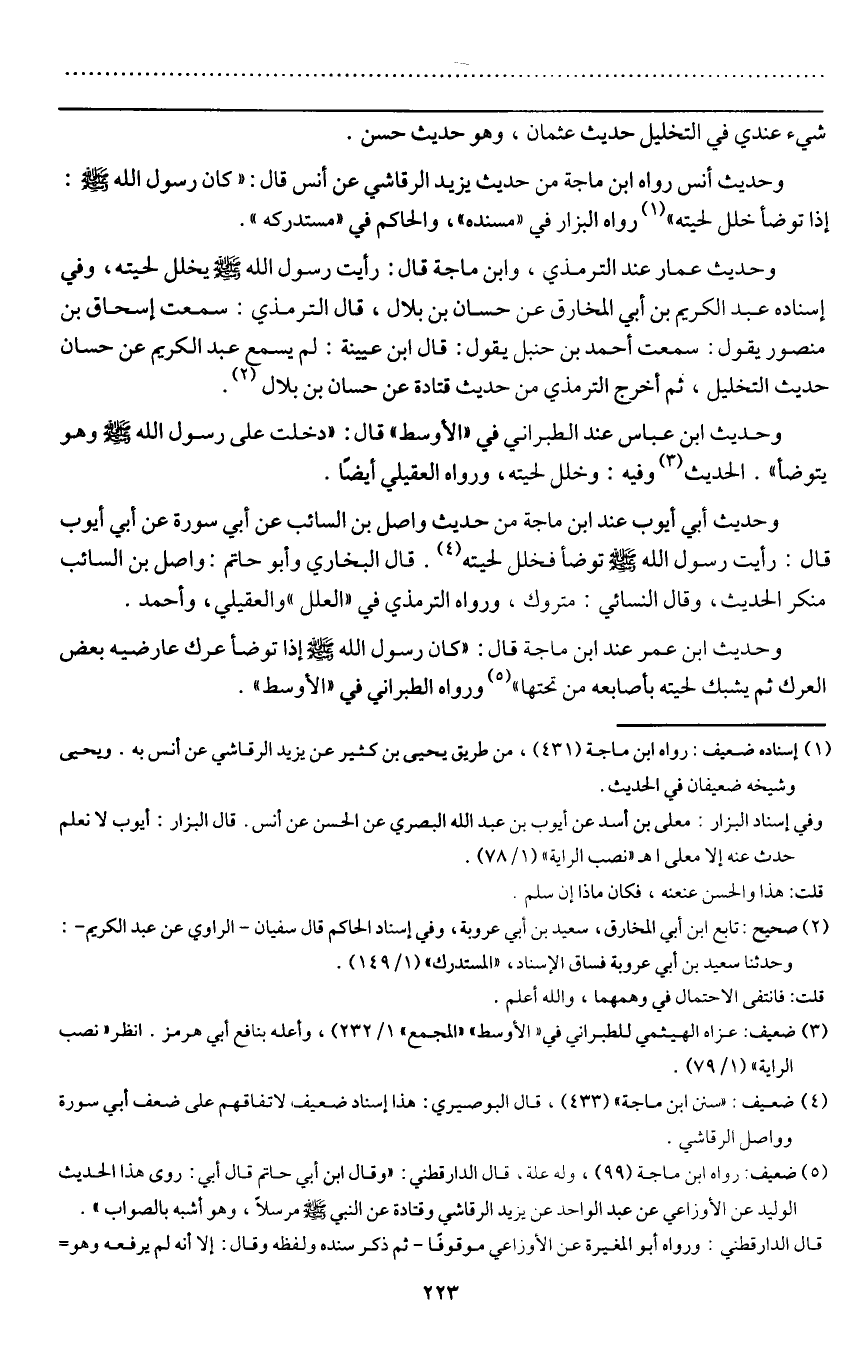 شيء عندي في التخليل حديث عثمان ، وهو حديث حسن .
وحديث أنس رواه ابن ماجة من حديث يزيد الرقاشي عن أنس قال : « كان رسول الله ﷺ :
إذا توضأ خلل لحيته»(١) رواه البزار في «مسنده» ، والحاكم في «مستدركه » .
وحديث عمار عند الترمذي ، وابن ماجة قال : رأيت رسول الله ﷺ يخلل لحيته ، وفي
إسناده عبد الكريم بن أبي المخارق عن حسان بن بلال ، قال الترمذي : سمعت إسحاق بن
منصور يقول : سمعت أحمد بن حنبل يقول : قال ابن عيينة : لم يسمع عبد الكريم عن حسان
حديث التخليل ، ثم أخرج الترمذي من حديث قتادة عن حسان بن بلال (٢) .
وحديث ابن عباس عند الطبراني في «الأوسط» قال : «دخلت على رسول الله ﷺ وهو
يتوضأ» . الحديث(٣) وفيه : وخلل لحيته ، ورواه العقيلي أيضًا .
وحديث أبي أيوب عند ابن ماجة من حديث واصل بن السائب عن أبي سورة عن أبي أيوب
قال : رأيت رسول الله ﷺ توضأ فخلل لحيته(٤) . قال البخاري وأبو حاتم : واصل بن السائب
منكر الحديث ، وقال النسائي : متروك ، ورواه الترمذي في «العلل »والعقيلي ، وأحمد .
وحديث ابن عمر عند ابن ماجة قال : «كان رسول الله ﷺ إذا توضأ عرك عارضيه بعض
العرك ثم يشبك لحيته بأصابعه من تحتها»(٥) ورواه الطبراني في «الأوسط» .
(١) إسناده ضعيف : رواه ابن ماجة (٤٣١) ، من طريق يحيى بن كثير عن يزيد الرقاشي عن أنس به . ويحيى
وشيخه ضعيفان في الحديث .
وفي إسناد البزار : معلى بن أسد عن أيوب بن عبد الله البصري عن الحسن عن أنس . قال البزار : أيوب لا نعلم
حدث عنه إلا معلى ا هـ «نصب الراية» (١/ ٧٨) .
قلت : هذا والحسن عنعنه ، فكان ماذا إن سلم .
(٢) صحيح : تابع ابن أبي المخارق ، سعيد بن أبي عروبة ، وفي إسناد الحاكم قال سفيان - الراوي عن عبد الكريم- :
وحدثنا سعيد بن أبي عروبة فساق الإسناد ، «المستدرك» (١/ ١٤٩) .
قلت : فانتفى الاحتمال في وهمهما ، والله أعلم .
(٣) ضعيف : عزاه الهيثمي للطبراني في« الأوسط» «المجمع» ١/ ٢٣٢) ، وأعله بنافع أبي هرمز . انظر« نصب
الراية» (١/ ٧٩) .
(٤) ضعيف : «سنن ابن ماجة» (٤٣٣) ، قال البوصيري : هذا إسناد ضعيف لاتفاقهم على ضعف أبي سورة
وواصل الرقاشي .
(٥) ضعيف : رواه ابن ماجة (٩٩) ، وله علة ، قال الدارقطني : «وقال ابن أبي حاتم قال أبي : روى هذا الحديث
الوليد عن الأوزاعي عن عبد الواحد عن يزيد الرقاشي وقتادة عن النبي ﷺ مرسلاً ، وهو أشبه بالصواب » .
قال الدارقطني : ورواه أبو المغيرة عن الأوزاعي موقوفًا - ثم ذكر سنده ولفظه وقال : إلا أنه لم يرفعه وهو=
٢٢٣